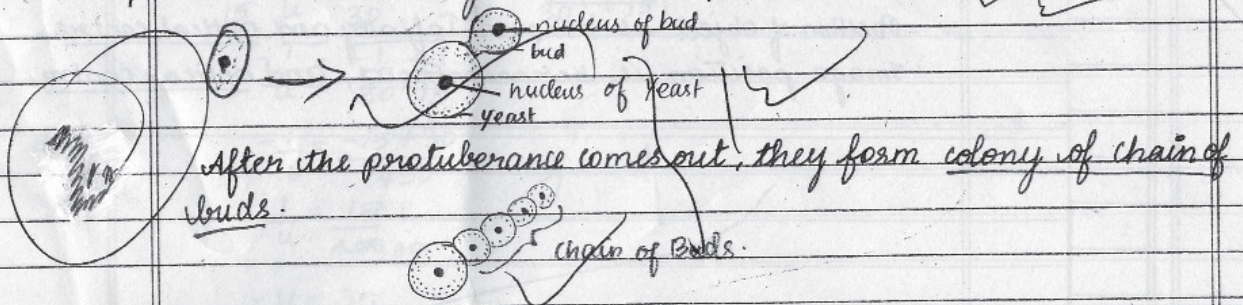 nucleus of bud
bud
nucleus of Yeast
yeast
After the protuberance comes out, they form colony of chain of
buds.
chain of Buds.